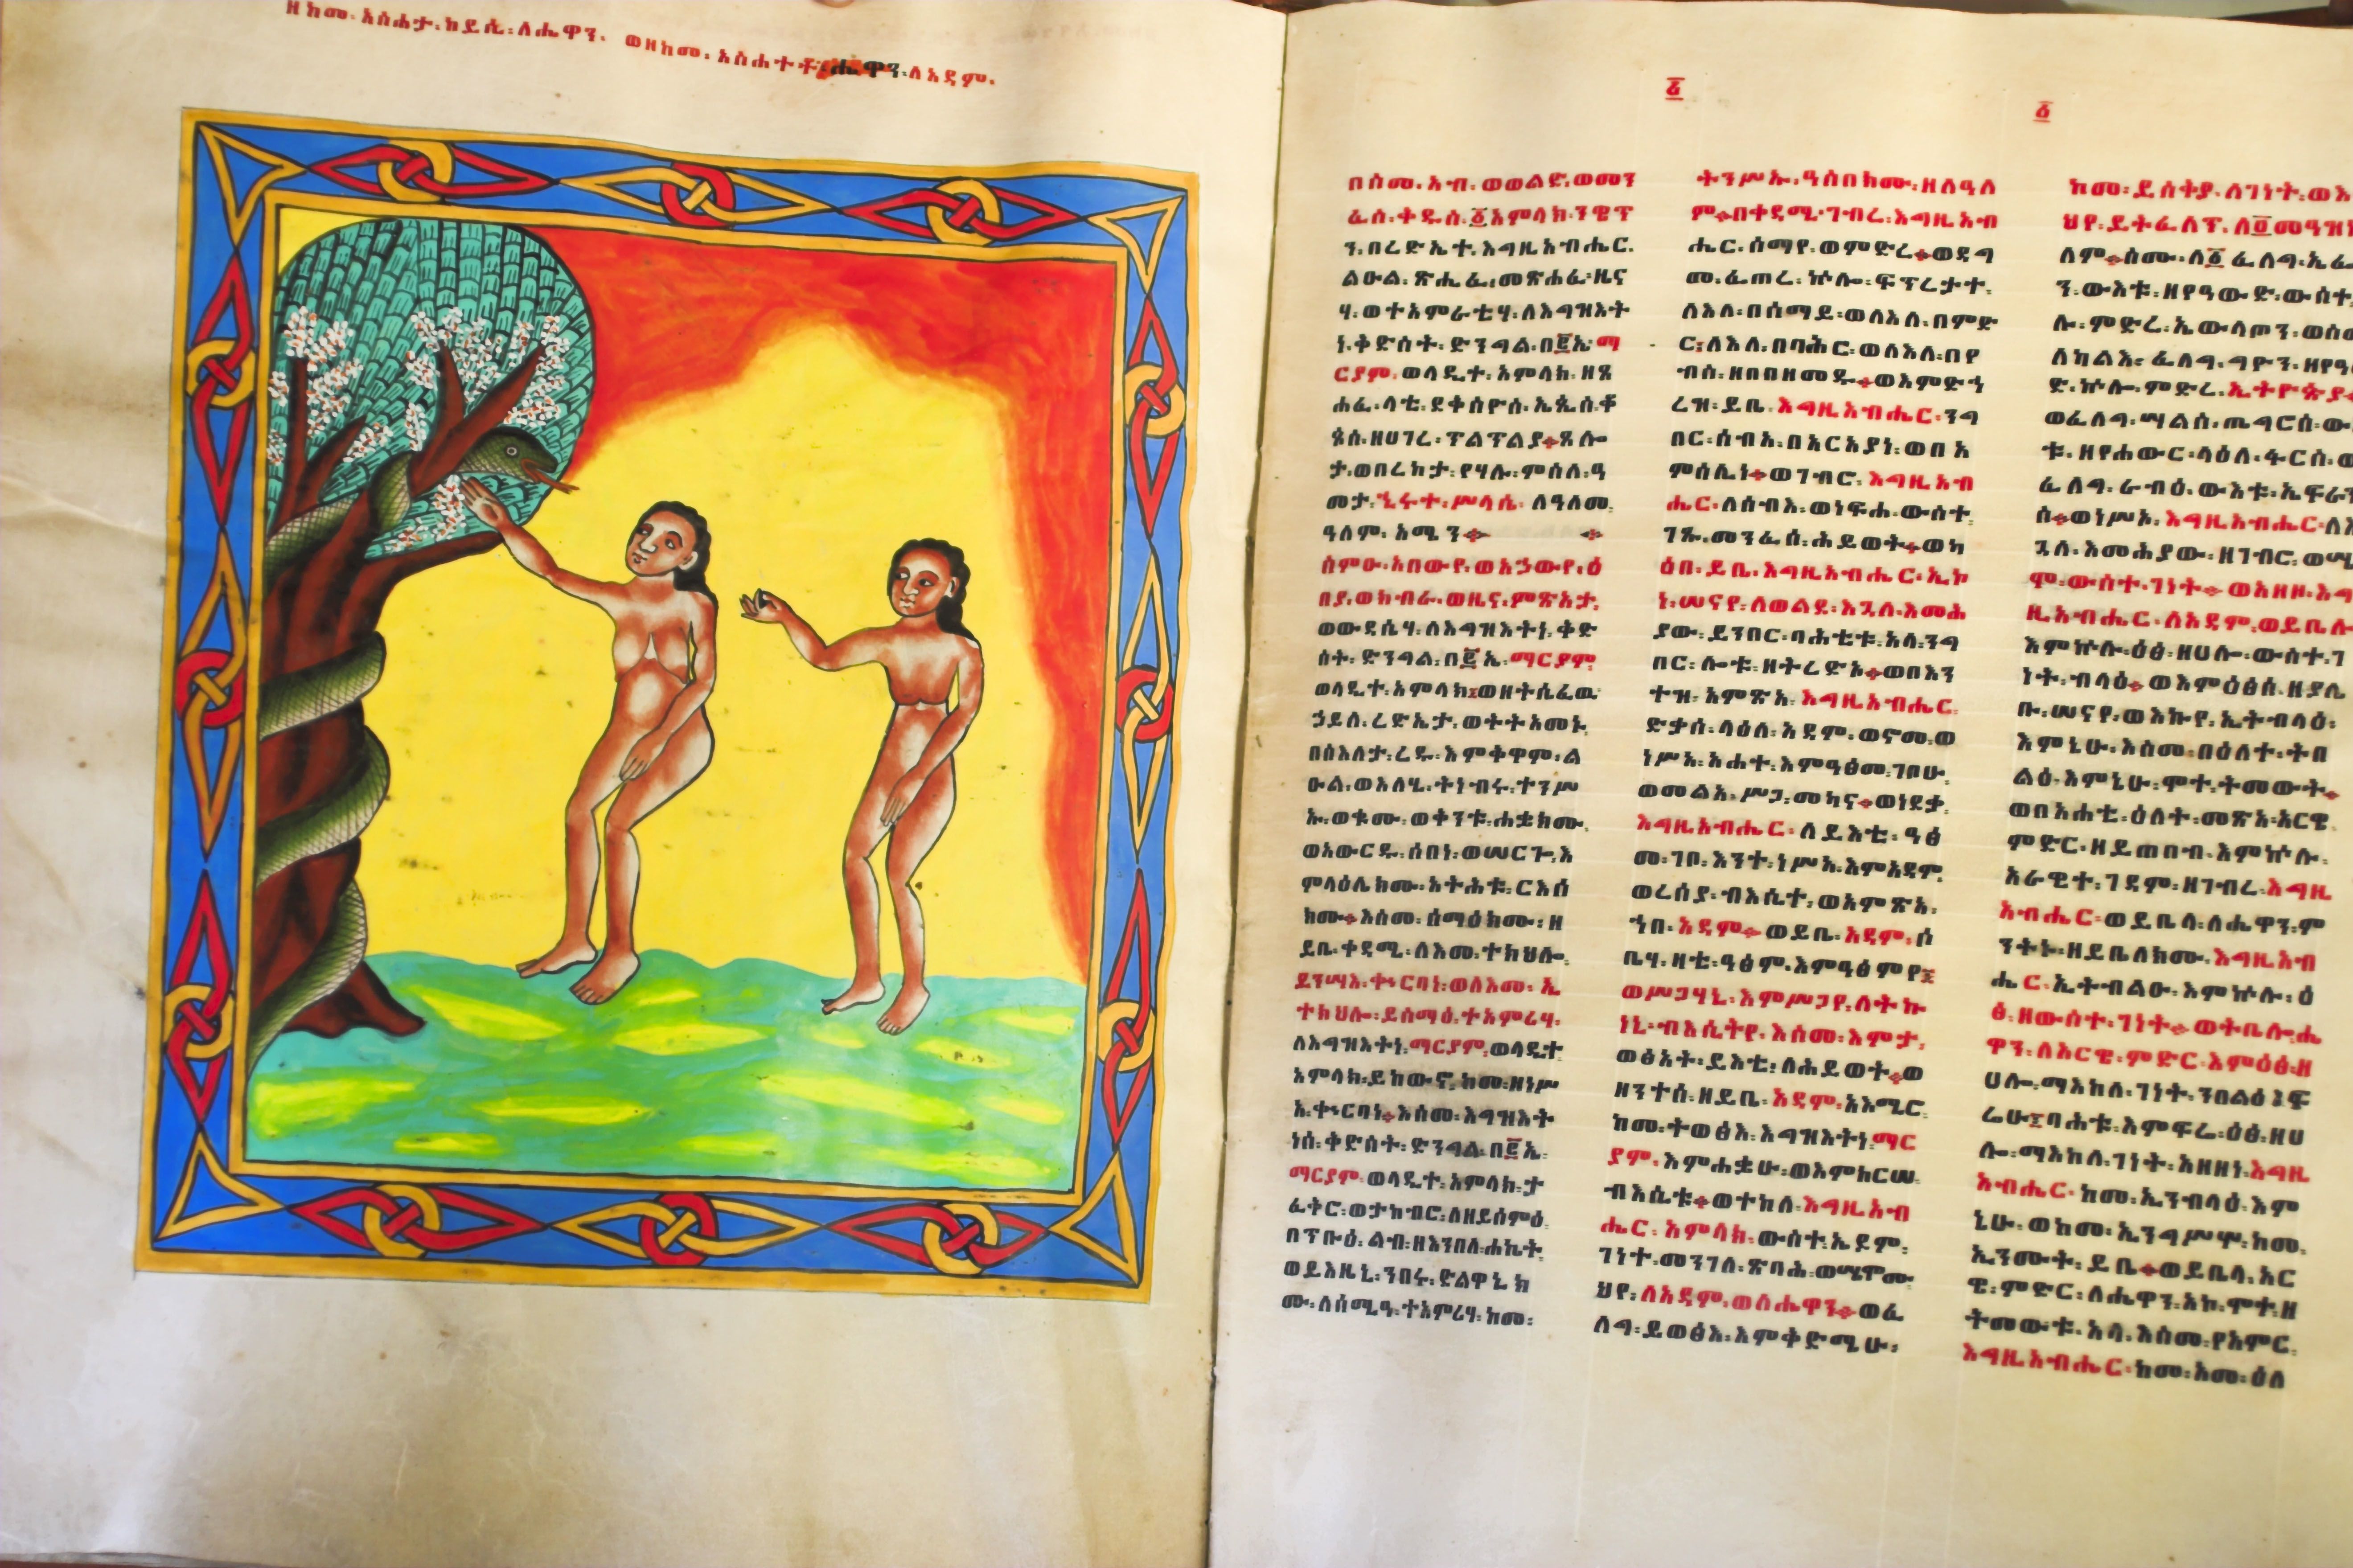 ዘከመ፡ አስሐታ፡ ከይሲ፡ ለሔዋን፡ ወዘከመ፡ አስሐተቶ፡ ሔዋን፡ ለአዳም፡
በስመ፡ አብ፡ ወወልድ፡ ወመን
ፈስ፡ ቅዱስ፡ ፩አምላክ፡ ንዌጥ
ን፡ በረድኤተ፡ እግዚአብሔር፡
ልዑል፡ ጽሒፈ፡ መጽሐፈ፡ ዜና
ሃ፡ ወተአምራቲሃ፡ ለእግዝእት
ነ፡ ቅድስት፡ ድንግል፡ በ፪ኤ፡ ማ
ርያም፡ ወላዲተ፡ አምላክ፡ ዘጸ
ሐፈ፡
ታ፡ ወበረከታ፡ የሃሉ፡ ምስለ፡
ዓለም፡ አሜን።
ስምዑ፡ አበውየ፡ ወአኃውየ፡ ዕ
በያ፡ ወክብራ፡ ወዜና፡ ምጽአታ፡
ወውዳሴሃ፡ ለእግዝእትነ፡ ቅድ
ስት፡ ድንግል፡ በ፪ኤ፡ ማርያም፡
ወላዲተ፡ አምላክ፡ ወዘትሴፈዉ፡
ኃይለ፡ ረድኤታ፡ ወተትአመኑ፡
በስእለታ፡ ረዱ፡ እምቅዋም፡ ል
ዑል፡ ወእለሂ፡ ትነብሩ፡ ተንሥ
ኡ፡ ወቁሙ፡ ወቅንቱ፡ ሐቌክሙ፡
ወአውርዱ፡ ሰበነ፡ ወሠርጉ፡ እ
ምላዕሌክሙ፡ አትሕቱ፡ ርእሰ
ክሙ፡ እስመ፡ ሰማዕክሙ፡ ዘ
ይቤ፡ ቀዳሚ፡ ለእመ፡ ተክህሎ፡
ይንሣእ፡ ቍርባነ፡ ወለእመ፡ ኢ
ተክህሎ፡ ይስማዕ፡ ተአምሪሃ፡
ለእግዝእትነ፡ ማርያም፡ ወላዲተ
አምላክ፡ ይከውኖ፡ ከመ፡ ዘነሥ
አ፡ ቍርባነ፡ እስመ፡ እግዝእት
ነሰ፡ ቅድስት፡ ድንግል፡ በ፪ኤ፡
ማርያም፡ ወላዲተ፡ አምላክ፡ ታ
ፈቅር፡ ወታከብር፡ ለዘይሰምዕ፡
በጥቡዕ፡ ልብ፡ ዘእንበለ፡ ሐኬት፡
ወይእዜኒ፡ ንበሩ፡ ድልዋኒክ
ሙ፡ ለሰሚዓ፡ ተአምሪሃ፡ ከመ፡
፩
ትንሥኡ፡ ዓስበክሙ፡ ዘለዓለ
ም። በቀዳሚ፡ ገብረ፡ እግዚአብ
ሔር፡ ሰማየ፡ ወምድረ። ወደግ
መ፡ ፈጠረ፡ ኵሎ፡ ፍጥረታተ፡
ለእለ፡ በሰማይ፡ ወለእለ፡ በምድ
ር፡ ለእለ፡ በባሕር፡ ወለእለ፡ በየ
ብስ፡ ዘበበዘመዱ። ወእምድኅ
ረዝ፡ ይቤ፡ እግዚአብሔር፡ ንግ
በር፡ ሰብአ፡ በአርአያነ፡ ወበአ
ምሳሊነ። ወገብሮ፡ እግዚአብ
ሔር፡ ለሰብእ፡ ወነፍሐ፡ ውስተ፡
ገጹ፡ መንፈሰ፡ ሕይወት። ወካ
ዕበ፡ ይቤ፡ እግዚአብሔር፡ ኢኮ
ነ፡ ሠናየ፡ ለወልደ፡ እጓለ፡ እመሕ
ያው፡ ይንበር፡ ባሕቲቱ፡ አላ፡ ንግ
በር፡ ሎቱ፡ ዘትረድኦ። ወበእን
ተዝ፡ አምጽአ፡ እግዚአብሔር፡
ድቃሰ፡ ላዕለ፡ አዳም፡ ወኖመ፡ ወ
ነሥአ፡ አሐተ፡ እምዓፅመ፡ ገቦሁ፡
ወመልአ፡ ሥጋ፡ መካና። ወነደቃ፡
እግዚአብሔር፡ ለይእቲ፡ ዓፅ
መ፡ ገቦ፡ እንተ፡ ነሥአ፡ እምአዳም፡
ወረሰያ፡ ብእሲተ፡ ወአምጽአ፡
ኀበ፡ አዳም። ወይቤ፡ አዳም፡ ሰ
ቤሃ፡ ዛቲ፡ ዓፅም፡ እምዓፅምየ፤
ወሥጋሃኒ፡ እምሥጋየ፡ ለትኩ
ነኒ፡ ብእሲትየ፡ እስመ፡ እምታ፡
ወፅአት፡ ይእቲ፡ ለሕይወት። ወ
ዘንተሰ፡ ዘይቤ፡ አዳም፡ አእሚሮ፡
ከመ፡ ተወፅእ፡ እግዝእትነ፡ ማር
ያም፡ እምሐቌሁ፡ ወእምከርሠ
ብእሲቱ። ወተከለ፡ እግዚአብ
ሔር፡ አምላክ፡ ውስተ፡ ኤዶም፡
ገነተ፡ መንገለ፡ ጽባሕ፡ ወሤሞሙ፡
ህየ፡ ለአዳም፡ ወለሔዋን። ወፈ
ለግ፡ ይወፅእ፡ እምቅድሜሁ፡
፩
ከመ፡ ይስቅያ፡ ለገነት፡
ህየ፡ ይትፈለጥ፡
ለም። ስሙ፡ ለ፩ ፈለግ፡
ን፡ ውእቱ፡ ዘየዓውድ፡
ሉ፡ ምድረ፡ ኤውላጦን፡
ለካልእ፡ ፈለግ፡ ግዮን፡
ድ፡ ኵሎ፡ ምድረ፡ ኢትዮጵያ።
ወፈለግ፡ ሣልስ፡ ጤግሮስ፡
ቱ፡ ዘየሐውር፡ ላዕለ፡ ፋርስ፡
ፈለግ፡ ራብዕ፡ ውእቱ፡
ስ። ወነሥአ፡ እግዚአብሔር፡
ጓለ፡ እመሕያው፡ ዘገብሮ፡
ሞ፡ ውስተ፡ ገነት። ወአዘዞ፡
ዚአብሔር፡ ለአዳም፡ ወይቤሎ
እምኵሉ፡ ዕፅ፡ ዘሀሎ፡ ውስተ፡ ገ
ነት፡ ብላዕ። ወእምዕፅሰ፡ ዘያሌ
ቡ፡ ሠናየ፡ ወእኩየ፡ ኢትብላዕ፡
እምኔሁ፡ እስመ፡ በዕለተ፡ ትበ
ልዕ፡ እምኔሁ፡ ሞተ፡ ትመውት።
ወበአሐቲ፡ ዕለት፡ መጽአ፡ አርዌ፡
ምድር፡ ዘይጠበብ፡ እምኵሉ፡
አራዊተ፡ ገዳም፡ ዘገብረ፡ እግዚ
አብሔር፡ ወይቤላ፡ ለሔዋን፡ ም
ንትኑ፡ ዘይቤለክሙ፡ እግዚአብ
ሔር፡ ኢትብልዑ፡ እምኵሉ፡ ዕ
ፅ፡ ዘውስተ፡ ገነት። ወትቤሎ፡ ሔ
ዋን፡ ለአርዌ፡ ምድር፡ እምዕፅ፡ ዘ
ሀሎ፡ ማእከለ፡ ገነት፡ ንበልዕ፡ ፍ
ሬሁ፤ ባሕቱ፡ እምፍሬ፡ ዕፅ፡ ዘሀ
ሎ፡ ማእከለ፡ ገነት፡ አዘዘነ፡ እግዚ
አብሔር፡ ከመ፡ ኢንብላዕ፡ እም
ኔሁ፡ ወከመ፡ ኢንግሥሥ፡ ከመ፡
ኢንሙት፡ ይቤ። ወይቤላ፡ አር
ዌ፡ ምድር፡ ለሔዋን፡ አኮ፡ ሞተ፡ ዘ
ትመውቱ፡ አላ፡ እስመ፡ የአምር፡
እግዚአብሔር፡ ከመ፡ አመ፡ ዕለ